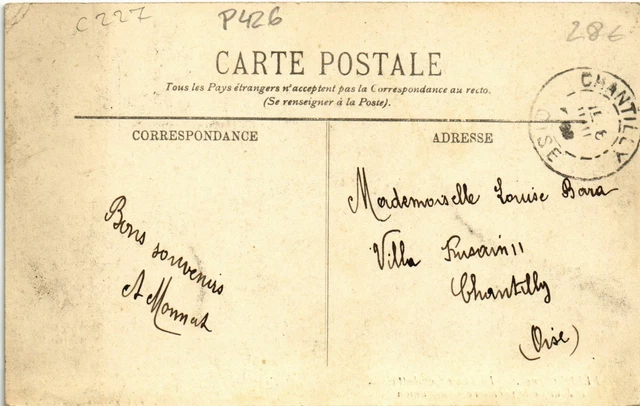 C 227
P426
28€
CARTE POSTALE
Tous les Pays étrangers n'acceptent pas la Correspondance au recto.
(Se renseigner à la Poste).
CHANTILLY
OISE
CORRESPONDANCE
ADRESSE
Mademoiselle Louise Bara
Villa
Chantilly
(Oise)
Bons souvenirs
A Monnat